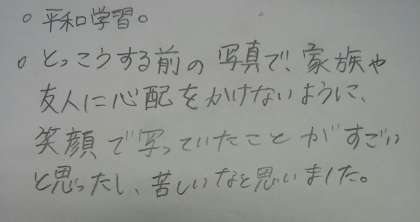 ○ 平和学習。
○ とっこうする前の写真で、家族や
友人に心配をかけないように、
笑顔で写っていたことがすごい
と思ったし、苦しいなと思いました。